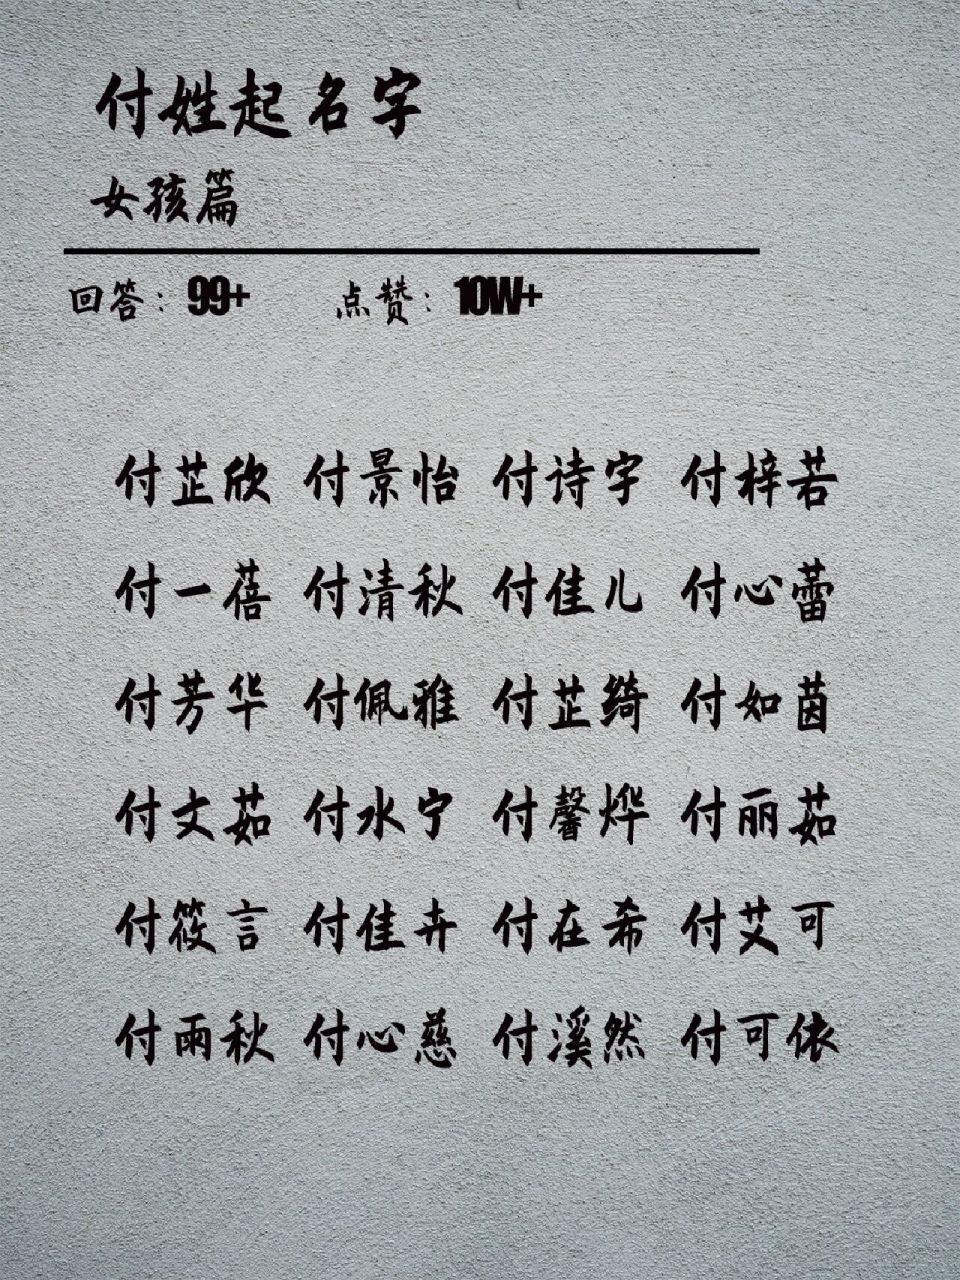 付姓起名字
女孩篇
回答：99+ 点赞：10W+
付芷欣 付景怡 付诗宇 付梓若
付一蓓 付清秋 付佳儿 付心蕾
付芳华 付佩雅 付芷绮 付如茵
付文茹 付水宁 付馨烨 付丽茹
付筱言 付佳卉 付在希 付艾可
付雨秋 付心慈 付溪然 付可依